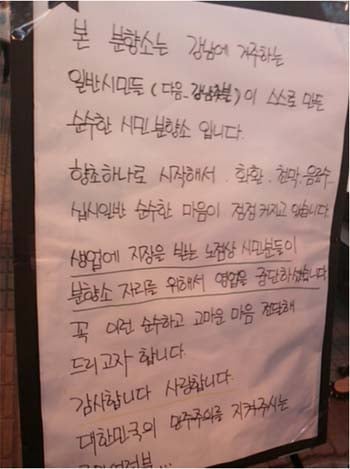 본 분향소는 강남에 거주하는
일반시민들 (다음_강남촛불)이 스스로 만든
순수한 시민분향소 입니다.
향초하나로 시작해서 . 화환 . 천막 . 음료수
십시일반 순수한 마음이 점점 커지고 있습니다.
생업에 지장을 받는 노점상 시민분들이
분향소 자리를 위해서 영업을 중단하셨습니다
꼭 이런 순수하고 고마운 마음 전달해
드리고자 합니다.
감사합니다 사랑합니다.
대한민국의 민주주의를 지켜주시는